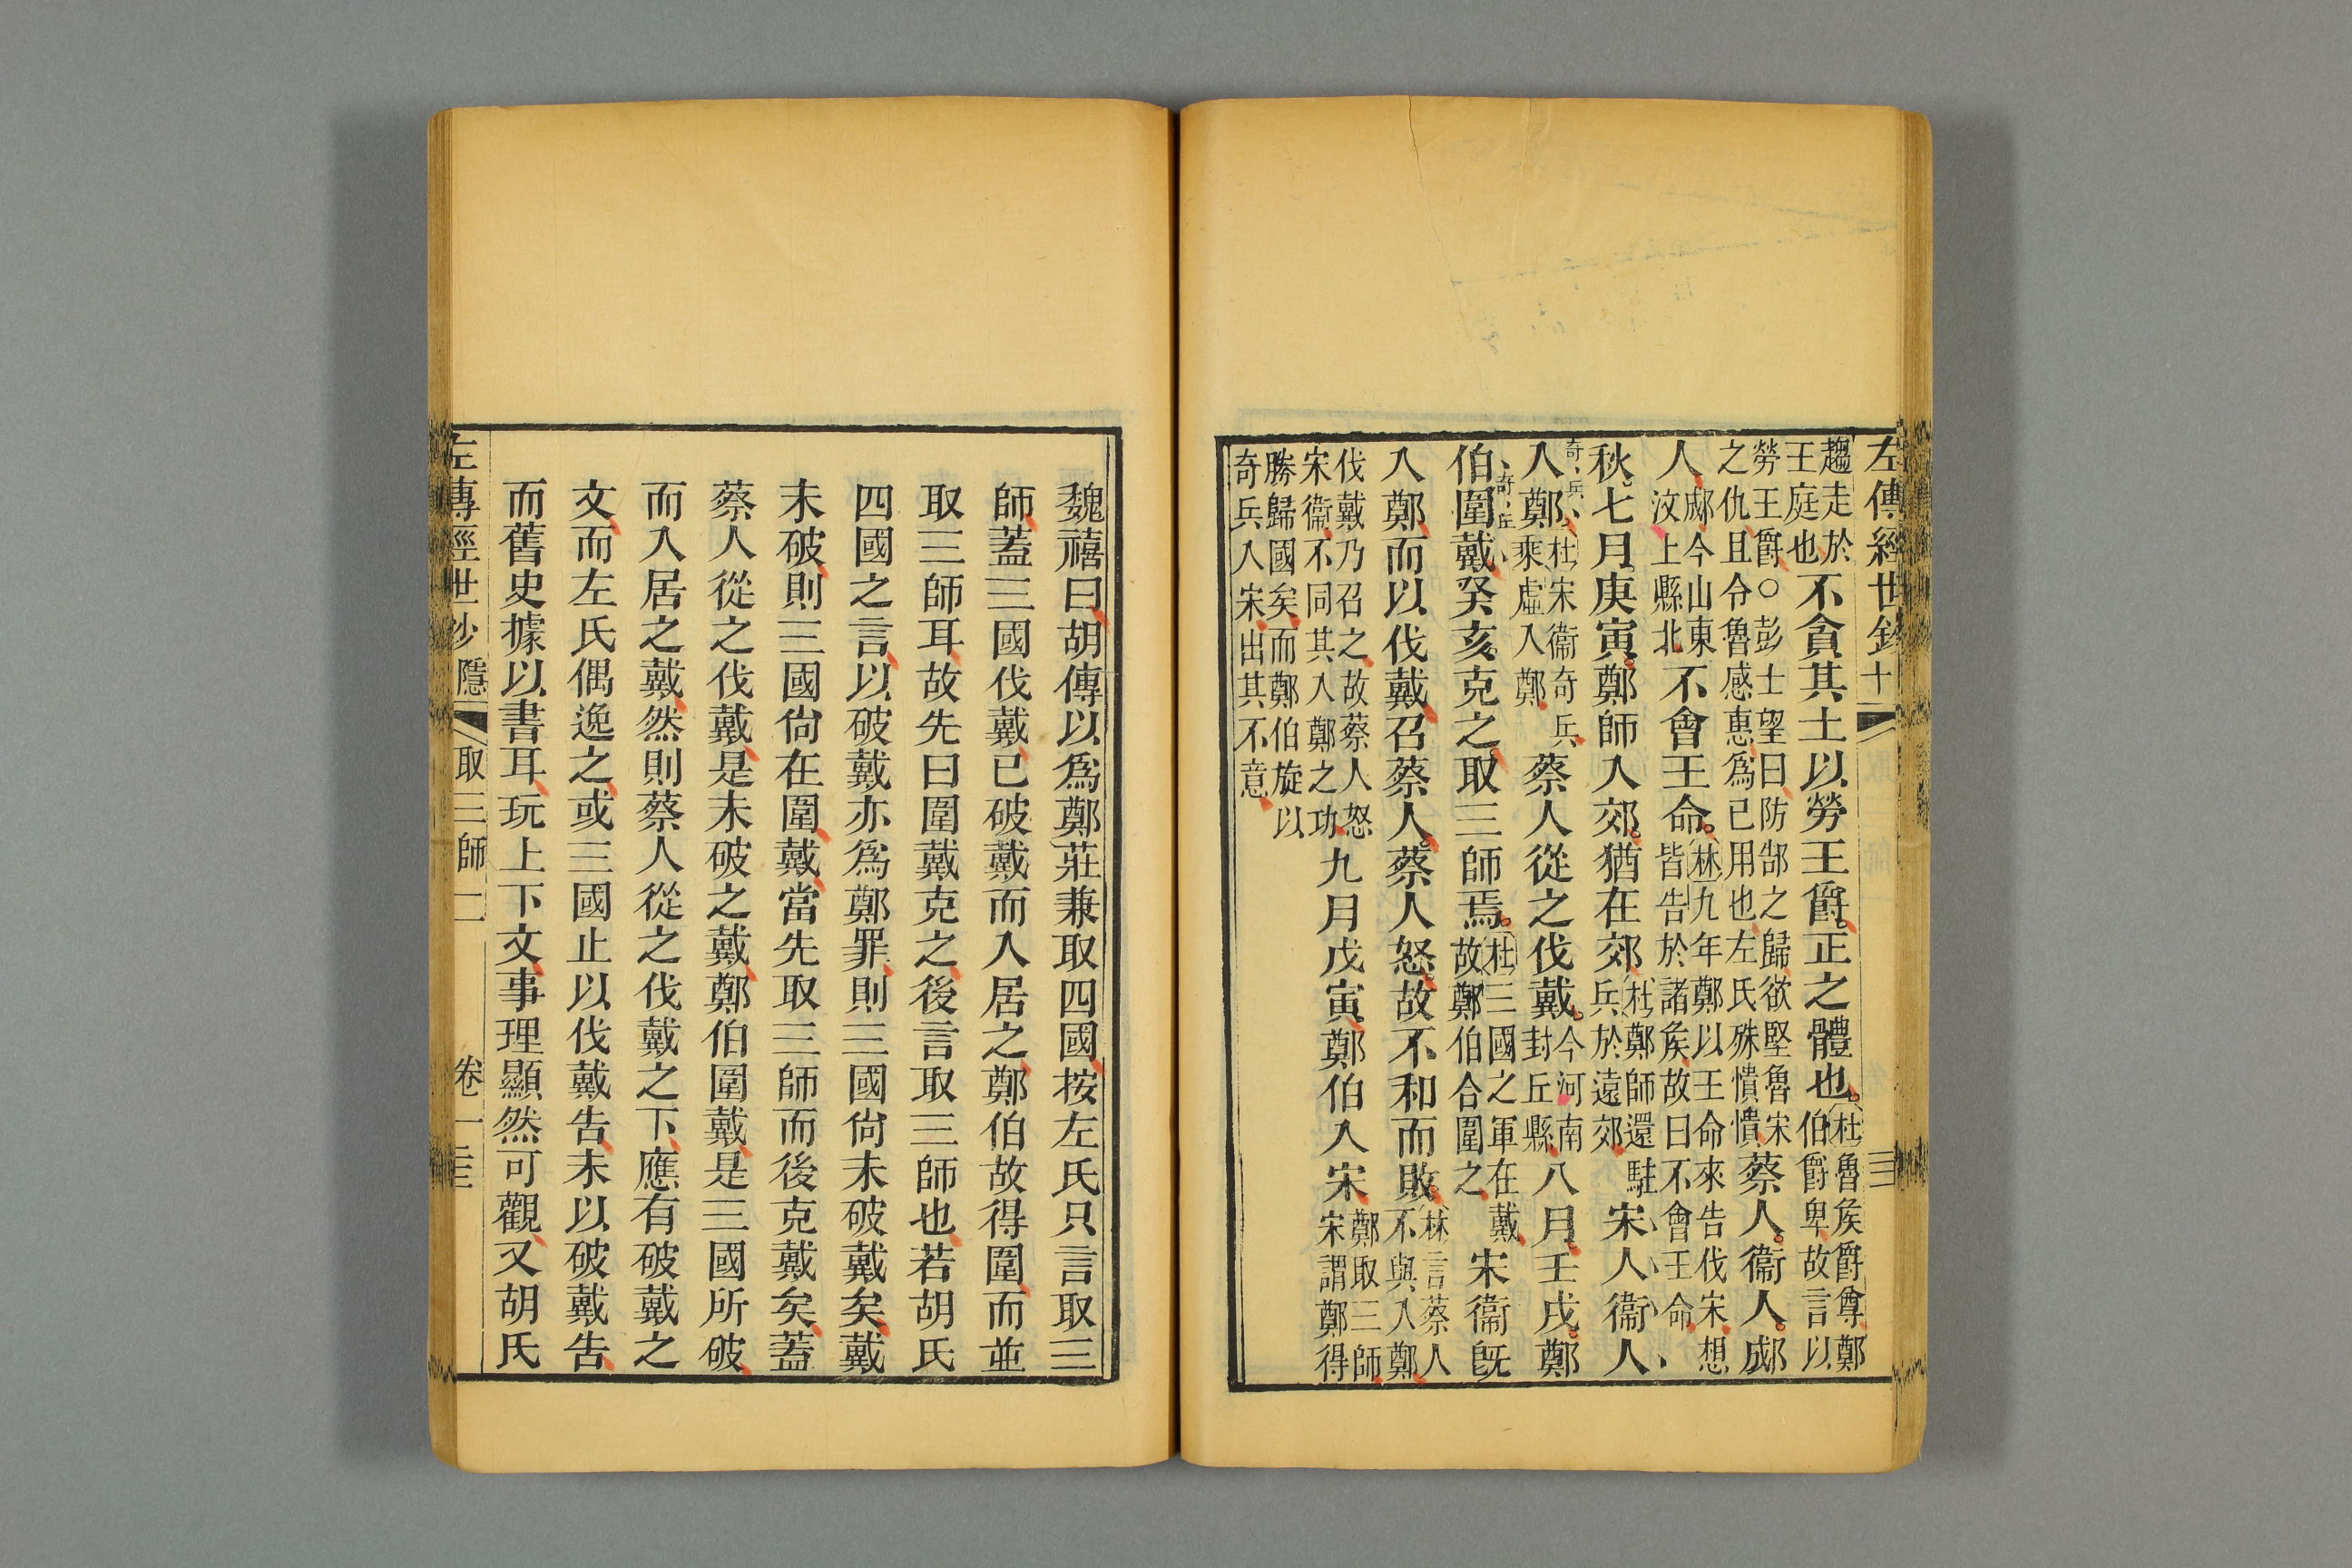 左傳經世鈔 十
趨走於
王庭也
不貪其土以勞王爵正之體也
杜魯矦爵尊鄭
伯爵卑故言以
勞王爵○彭士望曰防郜之歸欲堅魯宋
之仇且令魯感惠爲己用也左氏殊憒憒
蔡人衞人郕
人
郕今山東
汶上縣北
不會王命
林九年鄭以王命來告伐宋想
皆告於諸矦故曰不會王命
秋七月庚寅鄭師入郊猶在郊
杜鄭師還駐
兵於遠郊
宋人衞人
奇兵
入鄭
杜宋衞奇兵
乘虛入鄭
蔡人從之伐戴
今河南
封丘縣
八月壬戌鄭
奇兵
伯圍戴癸亥克之取三師焉
杜三國之軍在戴
故鄭伯合圍之
宋衞旣
入鄭而以伐戴召蔡人蔡人怒故不和而敗
林言蔡人
不與入鄭
伐戴乃召之故蔡人怒
宋衞不同其入鄭之功
九月戊寅鄭伯入宋
鄭取三師
宋謂鄭得
勝歸國矣而鄭伯旋以
奇兵入宋出其不意
魏禧曰胡傳以爲鄭莊兼取四國按左氏只言取三
師蓋三國伐戴已破戴而入居之鄭伯故得圍而並
取三師耳故先曰圍戴克之後言取三師也若胡氏
四國之言以破戴亦爲鄭罪則三國尙未破戴矣戴
未破則三國尙在圍戴當先取三師而後克戴矣蓋
蔡人從之伐戴是未破之戴鄭伯圍戴是三國所破
而入居之戴然則蔡人從之伐戴之下應有破戴之
文而左氏偶逸之或三國止以伐戴告未以破戴告
而舊史據以書耳玩上下文事理顯然可觀又胡氏
左傳經世鈔 隱 取三師一 卷一